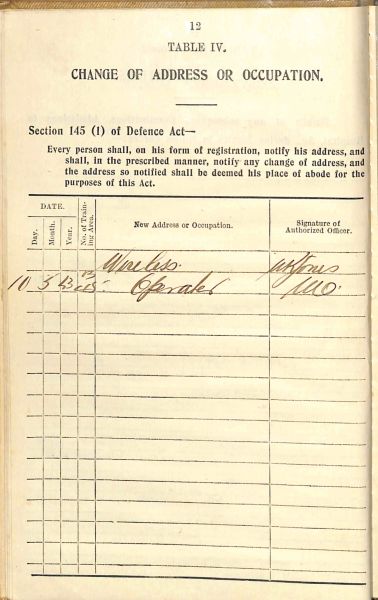 12
TABLE IV.
CHANGE OF ADDRESS OR OCCUPATION.
Section 145 (1) of Defence Act—
Every person shall, on his form of registration, notify his address, and
shall, in the prescribed manner, notify any change of address, and
the address so notified shall be deemed his place of abode for the
purposes of this Act.
DATE.
Day.
Month.
Year.
No. of Train-
ing Area.
New Address or Occupation.
Signature of
Authorized Officer.
Wireless
Jones
10 5 13 Operator